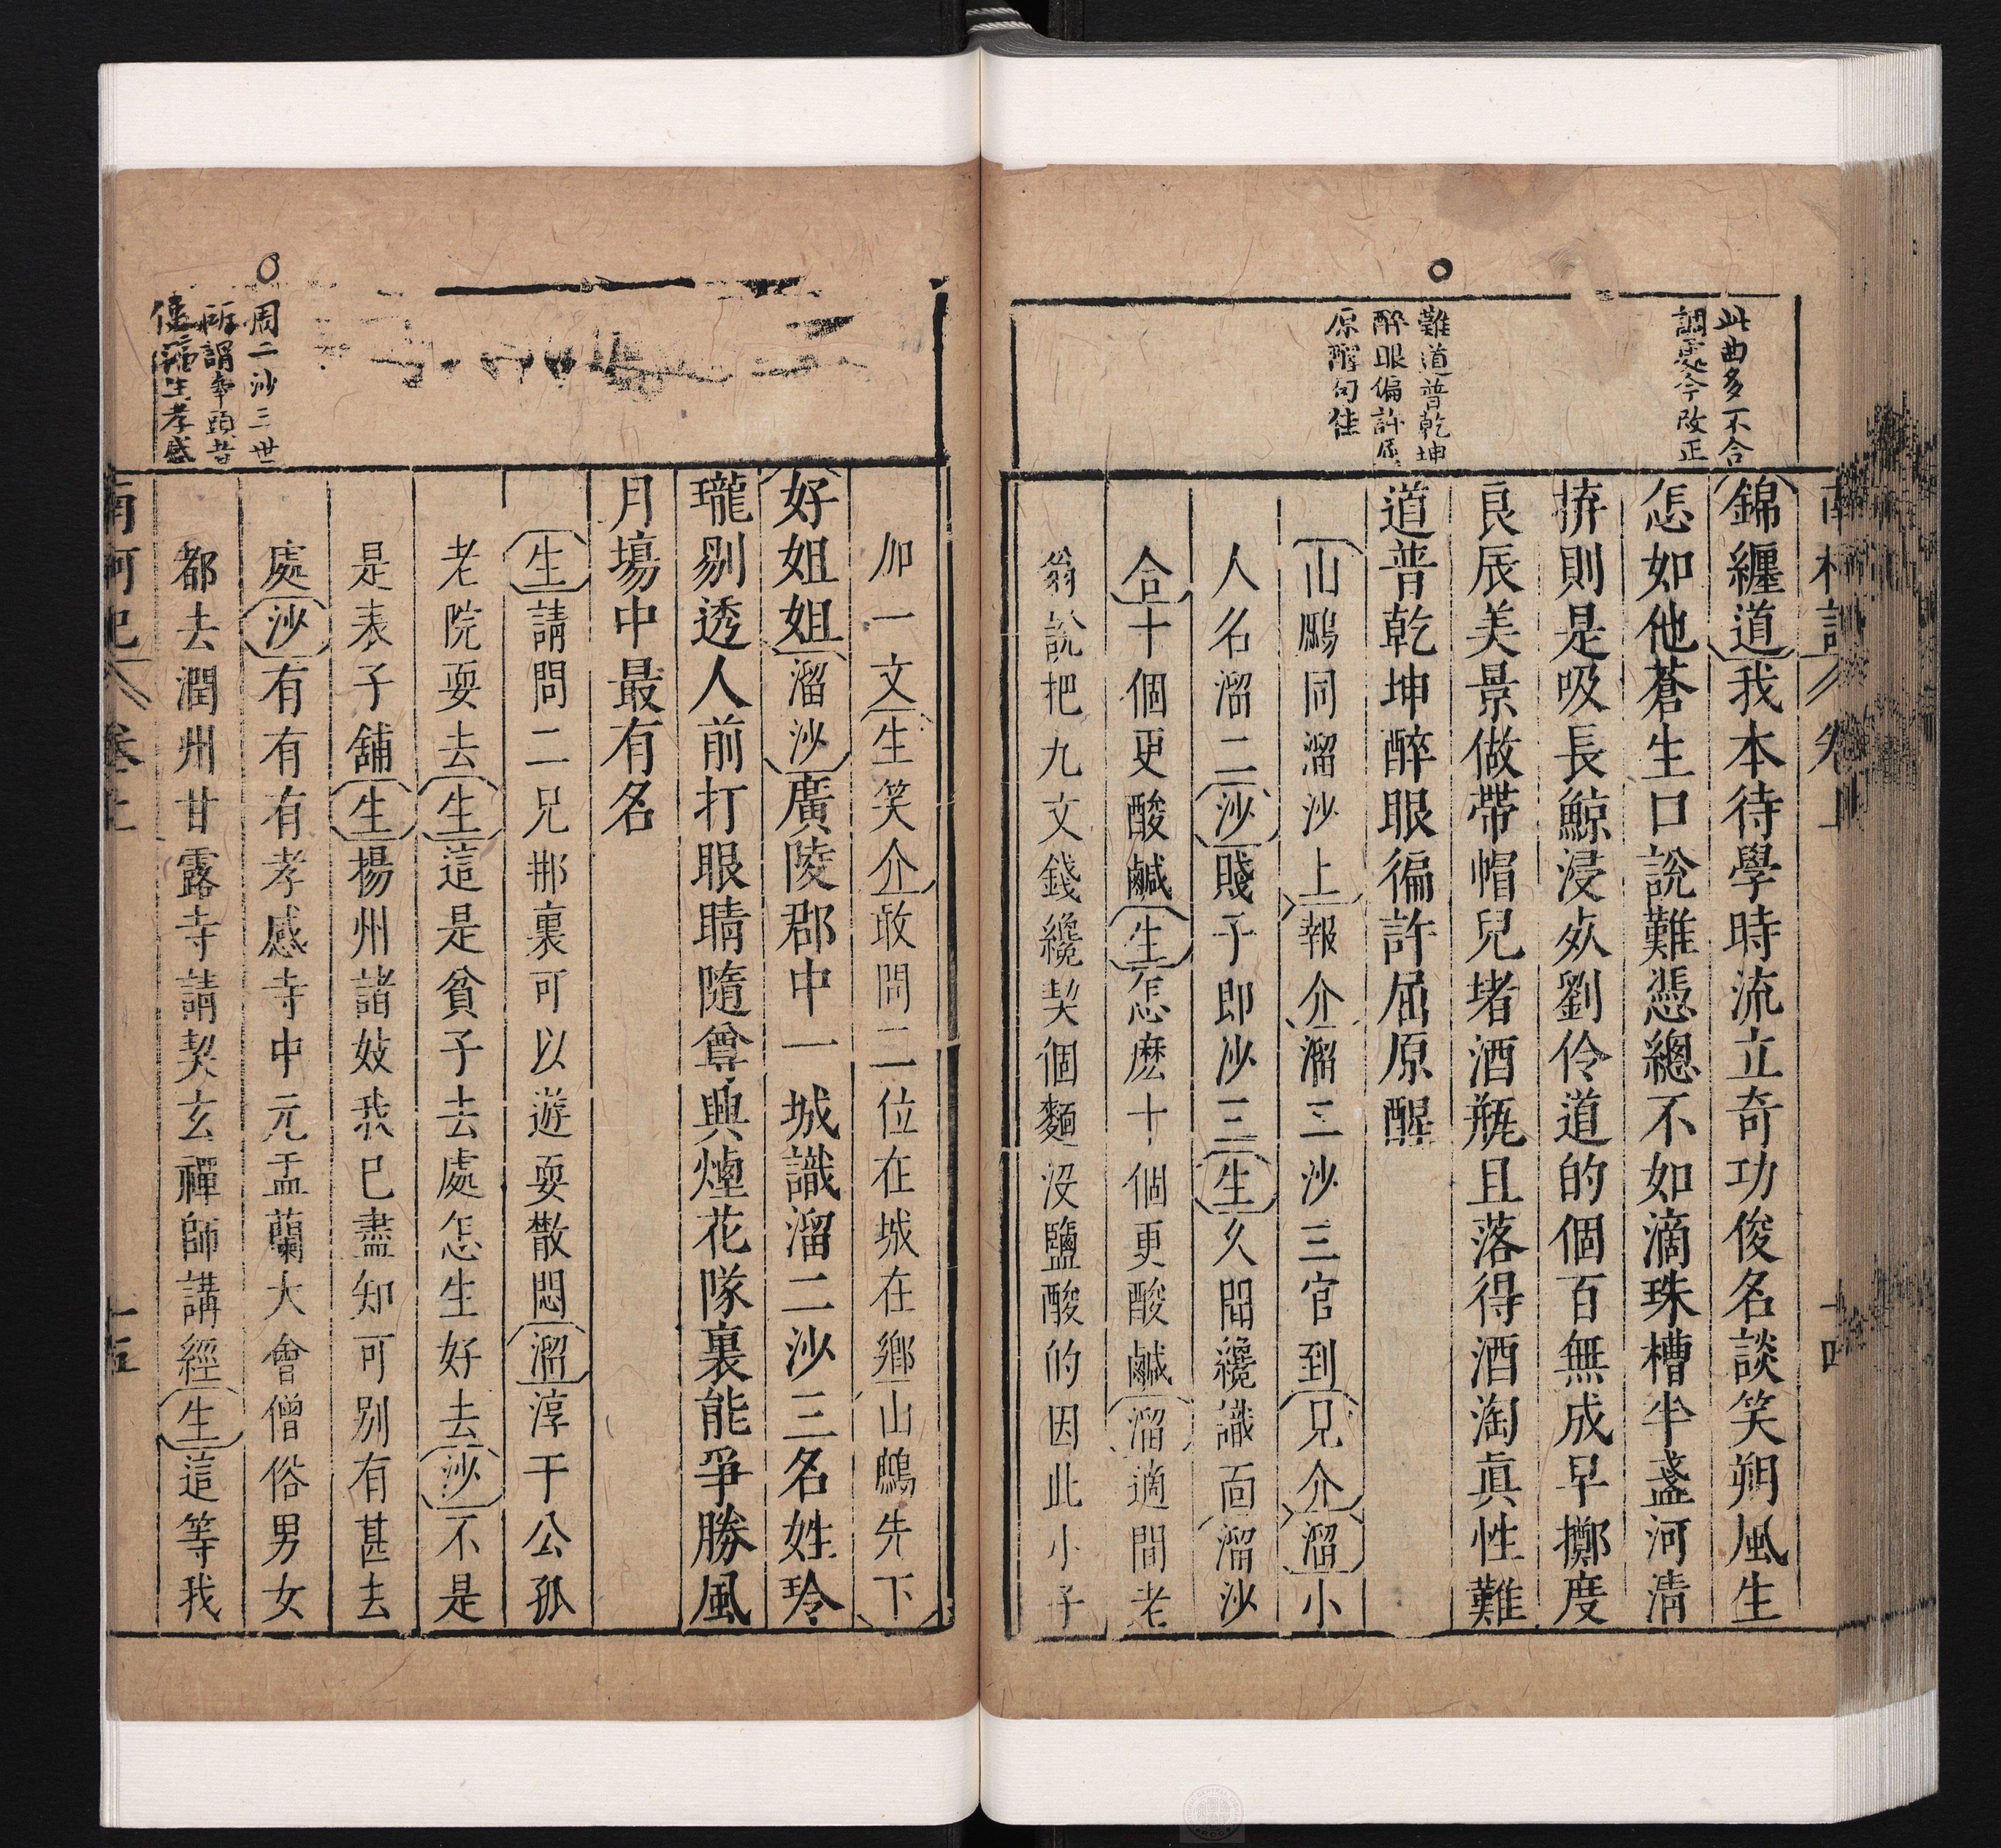 此曲多不合
調處今改正
難道普乾坤
醉眼偏許屈
原醒句佳
錦纏道我本待學時流立奇功俊名談笑朔風生
怎如他蒼生口說難憑總不如滴珠槽半盞河清
拚則是吸長鯨浸死劉伶道的個百無成早擲度
良辰美景做帶帽兒堵酒瓶且落得酒淘眞性難
道普乾坤醉眼徧許屈原醒
山鷓同溜沙上報介溜二沙三官到見介溜小
人名溜二沙賤子即沙三生久聞纔識面溜沙
合十個更酸鹹生怎麽十個更酸鹹溜適間老
翁說把九文錢纔契個麵没鹽酸的因此小子
加一文生笑介敢問二位在城在鄉山鷓先下
好姐姐溜沙廣陵郡中一城識溜二沙三名姓玲
瓏剔透人前打眼睛隨尊興煙花隊裏能爭勝風
月塲中最有名
生請問二兄那裏可以遊耍散悶溜淳于公孤
老院耍去生這是貧子去處怎生好去沙不是
是表子舖生揚州諸妓我已盡知可別有甚去
處沙有有有孝感寺中元盂蘭大會僧俗男女
都去潤州甘露寺請契玄禪師講經生這等我
周二沙三世
所謂牽頭者
生孝感
南柯記 卷上 十五